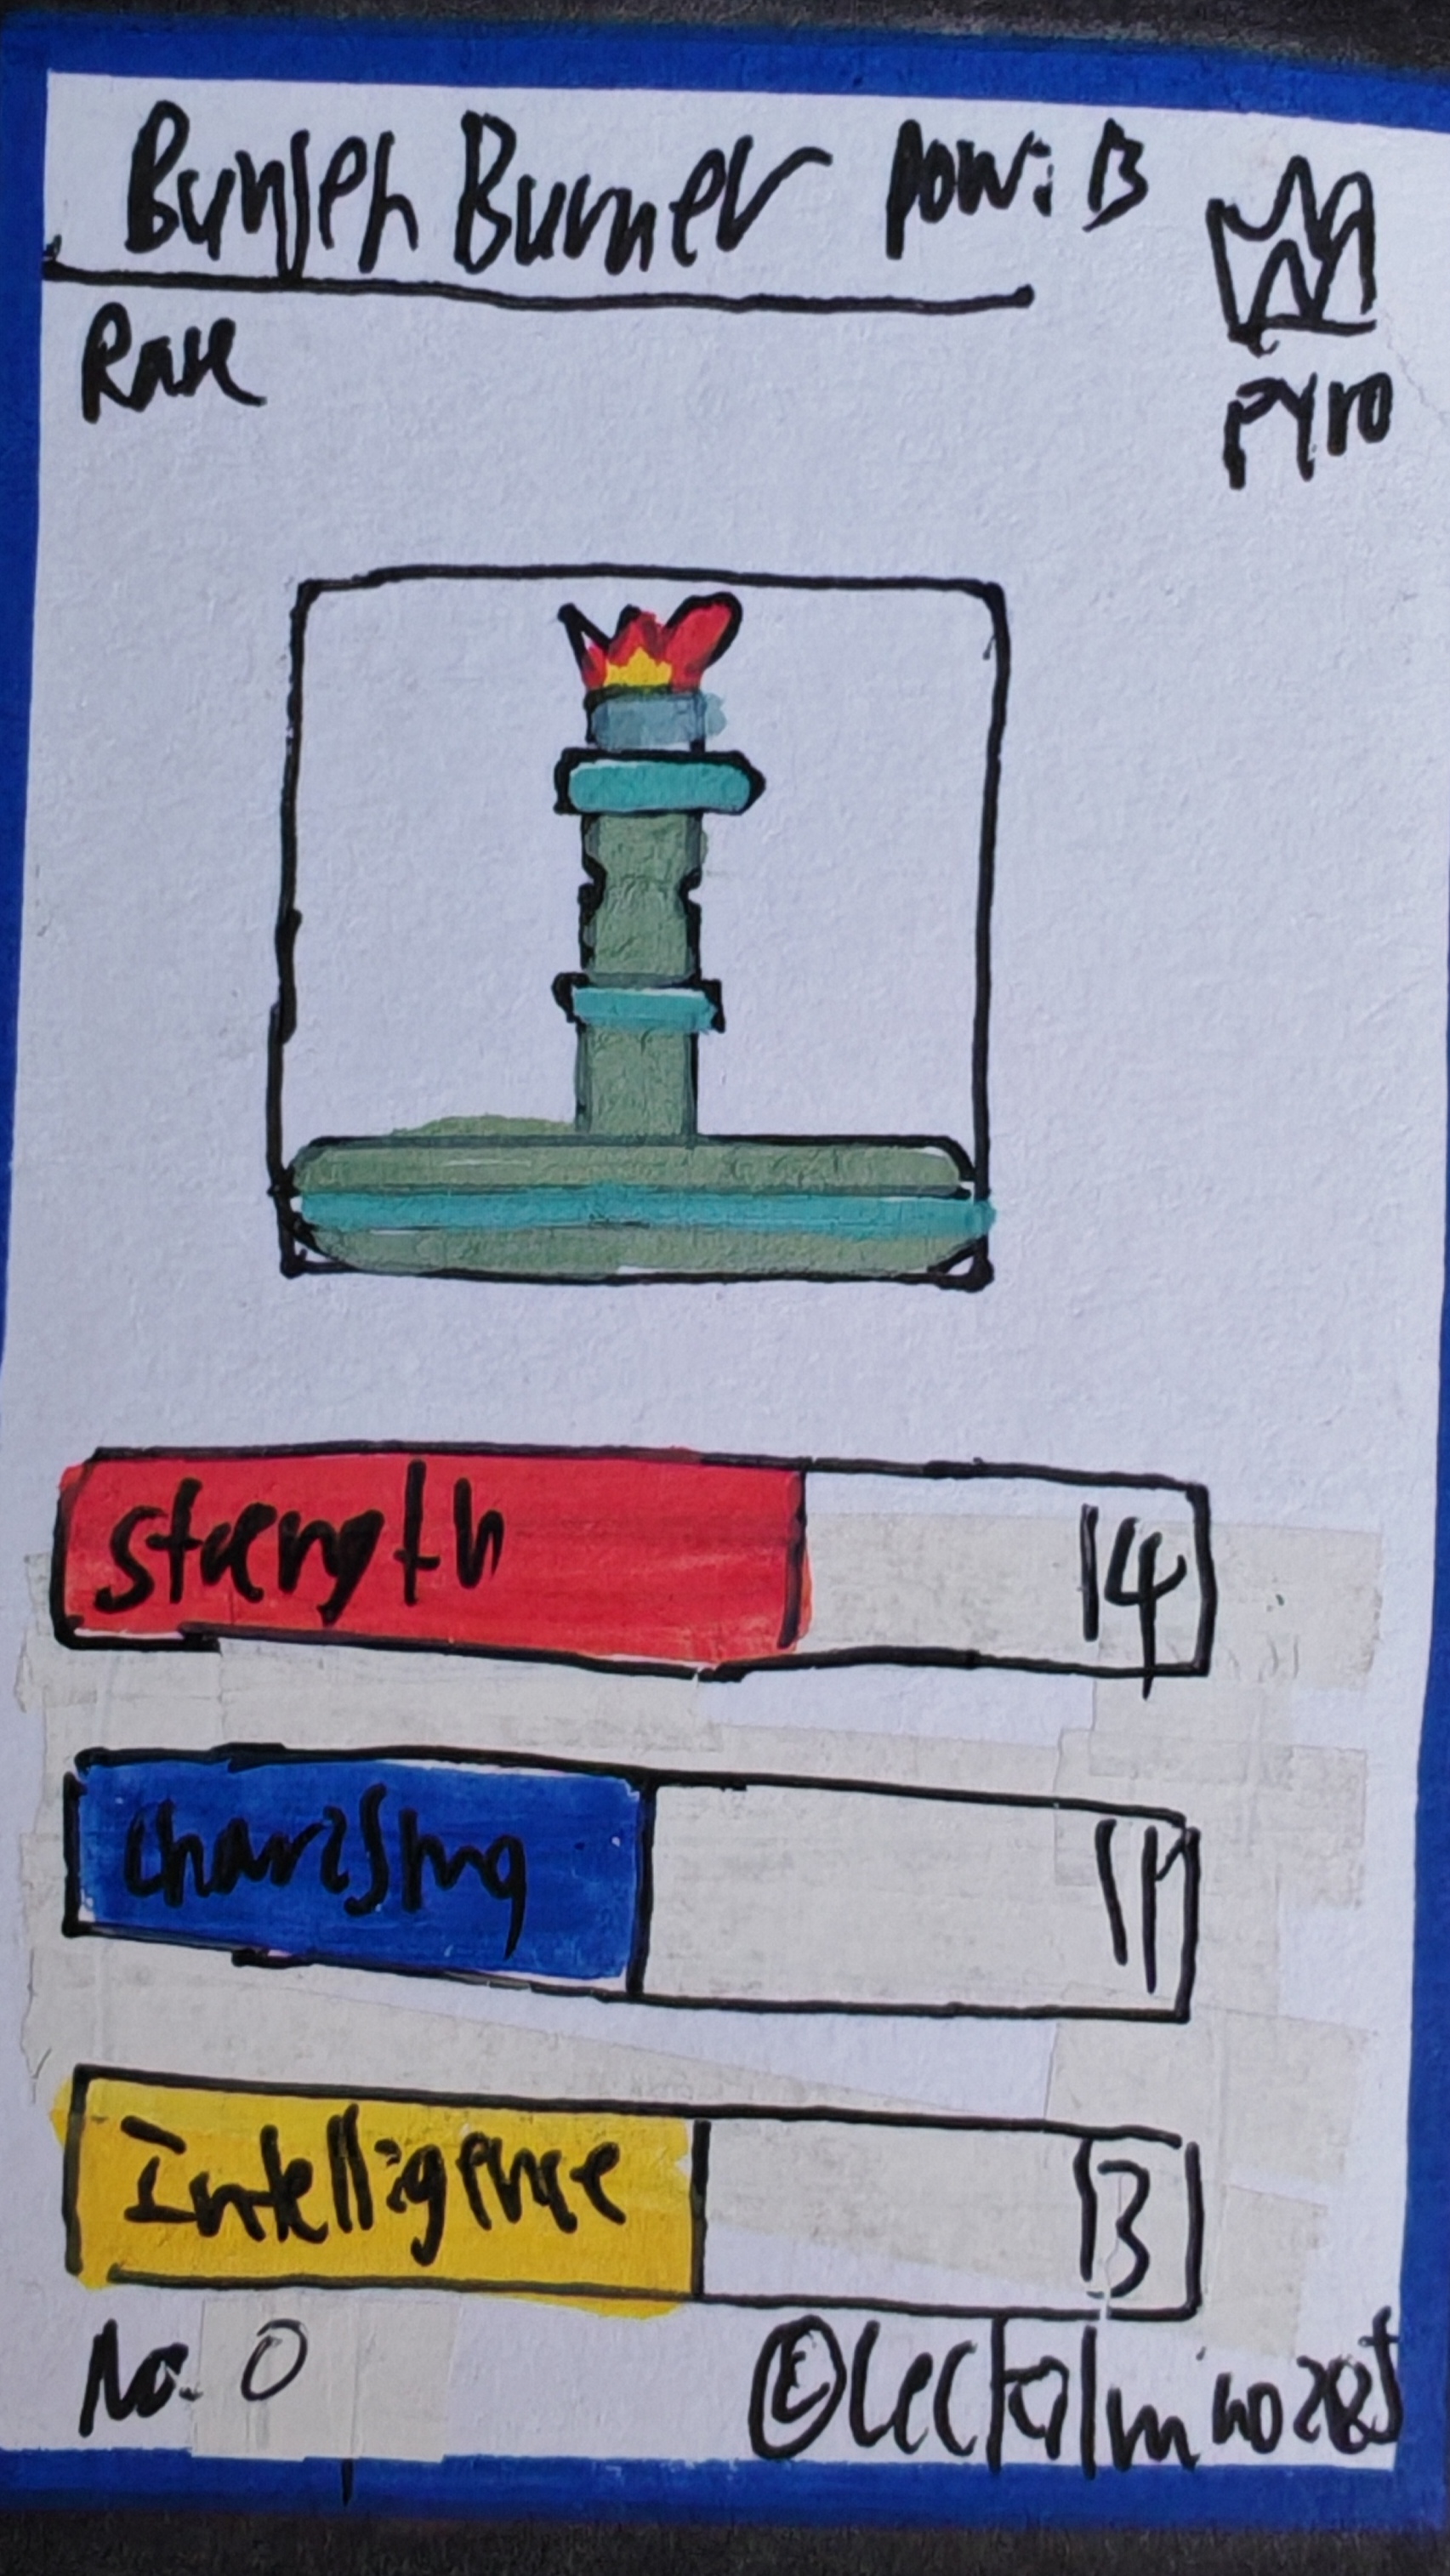 Bunsen Burner pow: 13
Rare
pyro
strength 14
charisma 11
Intelligence 13
No. 0
©